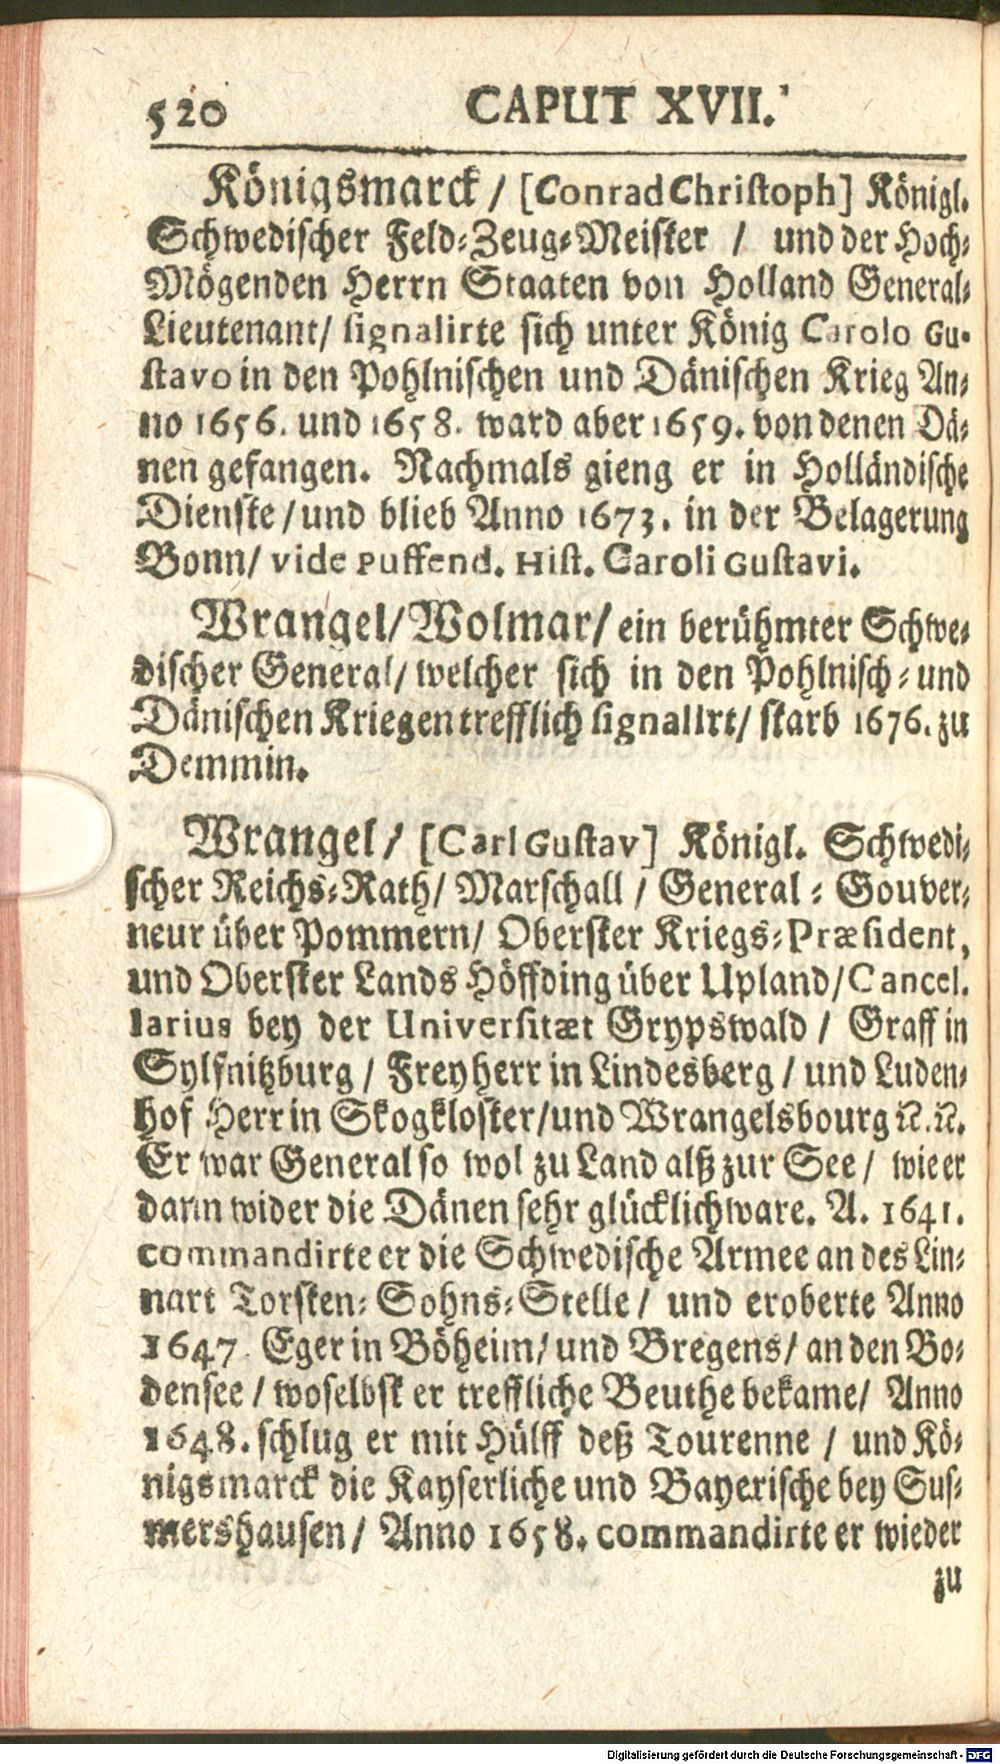 520 CAPUT XVII.
Königsmarck / [Conrad Christoph] Königl.
Schwedischer Feld-Zeug-Meister / und der Hoch-
Mögenden Herrn Staaten von Holland General-
Lieutenant/ signalirte sich unter König Carolo Gu-
stavo in den Pohlnischen und Dänischen Krieg An-
no 1656. und 1658. ward aber 1659. von denen Dä-
nen gefangen. Nachmals gieng er in Holländische
Dienste / und blieb Anno 1673. in der Belagerung
Bonn/ vide Puffend. Hist. Caroli Gustavi.
Wrangel/ Wolmar/ ein berühmter Schwe-
discher General/ welcher sich in den Pohlnisch- und
Dänischen Kriegen trefflich signalirt/ starb 1676. zu
Demmin.
Wrangel / [Carl Gustav] Königl. Schwedi-
scher Reichs-Rath/ Marschall / General-Gouver-
neur über Pommern/ Oberster Kriegs-Præsident,
und Oberster Lands Höffding über Upland/ Cancel.
larius bey der Universitæt Grypswald / Graff in
Sylfnitzburg / Freyherr in Lindesberg / und Luden-
hof Herr in Skogkloster/ und Wrangelsbourg ꝛc. ꝛc.
Er war General so wol zu Land alß zur See / wie er
dann wider die Dänen sehr glücklich ware. A. 1641.
commandirte er die Schwedische Armee an des Lin-
nart Torsten-Sohns-Stelle / und eroberte Anno
1647. Eger in Böheim/ und Bregens/ an den Bo-
densee / woselbst er treffliche Beuthe bekame/ Anno
1648. schlug er mit Hülff deß Tourenne / und Kö-
nigsmarck die Kayserliche und Bayerische bey Sus-
mershausen / Anno 1658. commandirte er wieder
zu
Digitalisierung gefördert durch die Deutsche Forschungsgemeinschaft - DFG